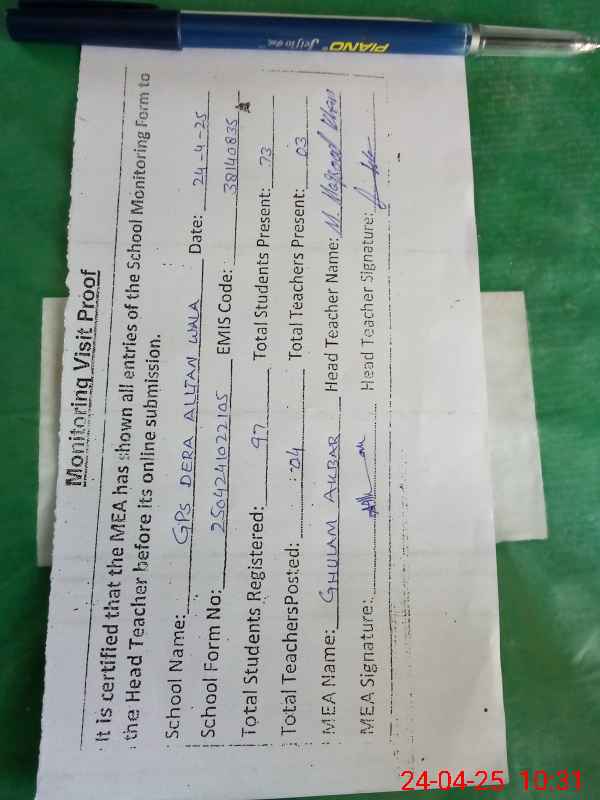 Monitoring Visit Proof
It is certified that the MEA has shown all entries of the School Monitoring Form to
the Head Teacher before its online submission.
School Name: GPS DERA ALLTAN WALA Date: 24-4-25
School Form No: 2504241022105 EMIS Code: 38140835
Total Students Registered: 97 Total Students Present: 73
Total TeachersPosted: 04 Total Teachers Present: 03
MEA Name: GHULAM AKBAR Head Teacher Name: M. Maqsood Khan
MEA Signature: Head Teacher Signature:
PIANO
24-04-25 10:31